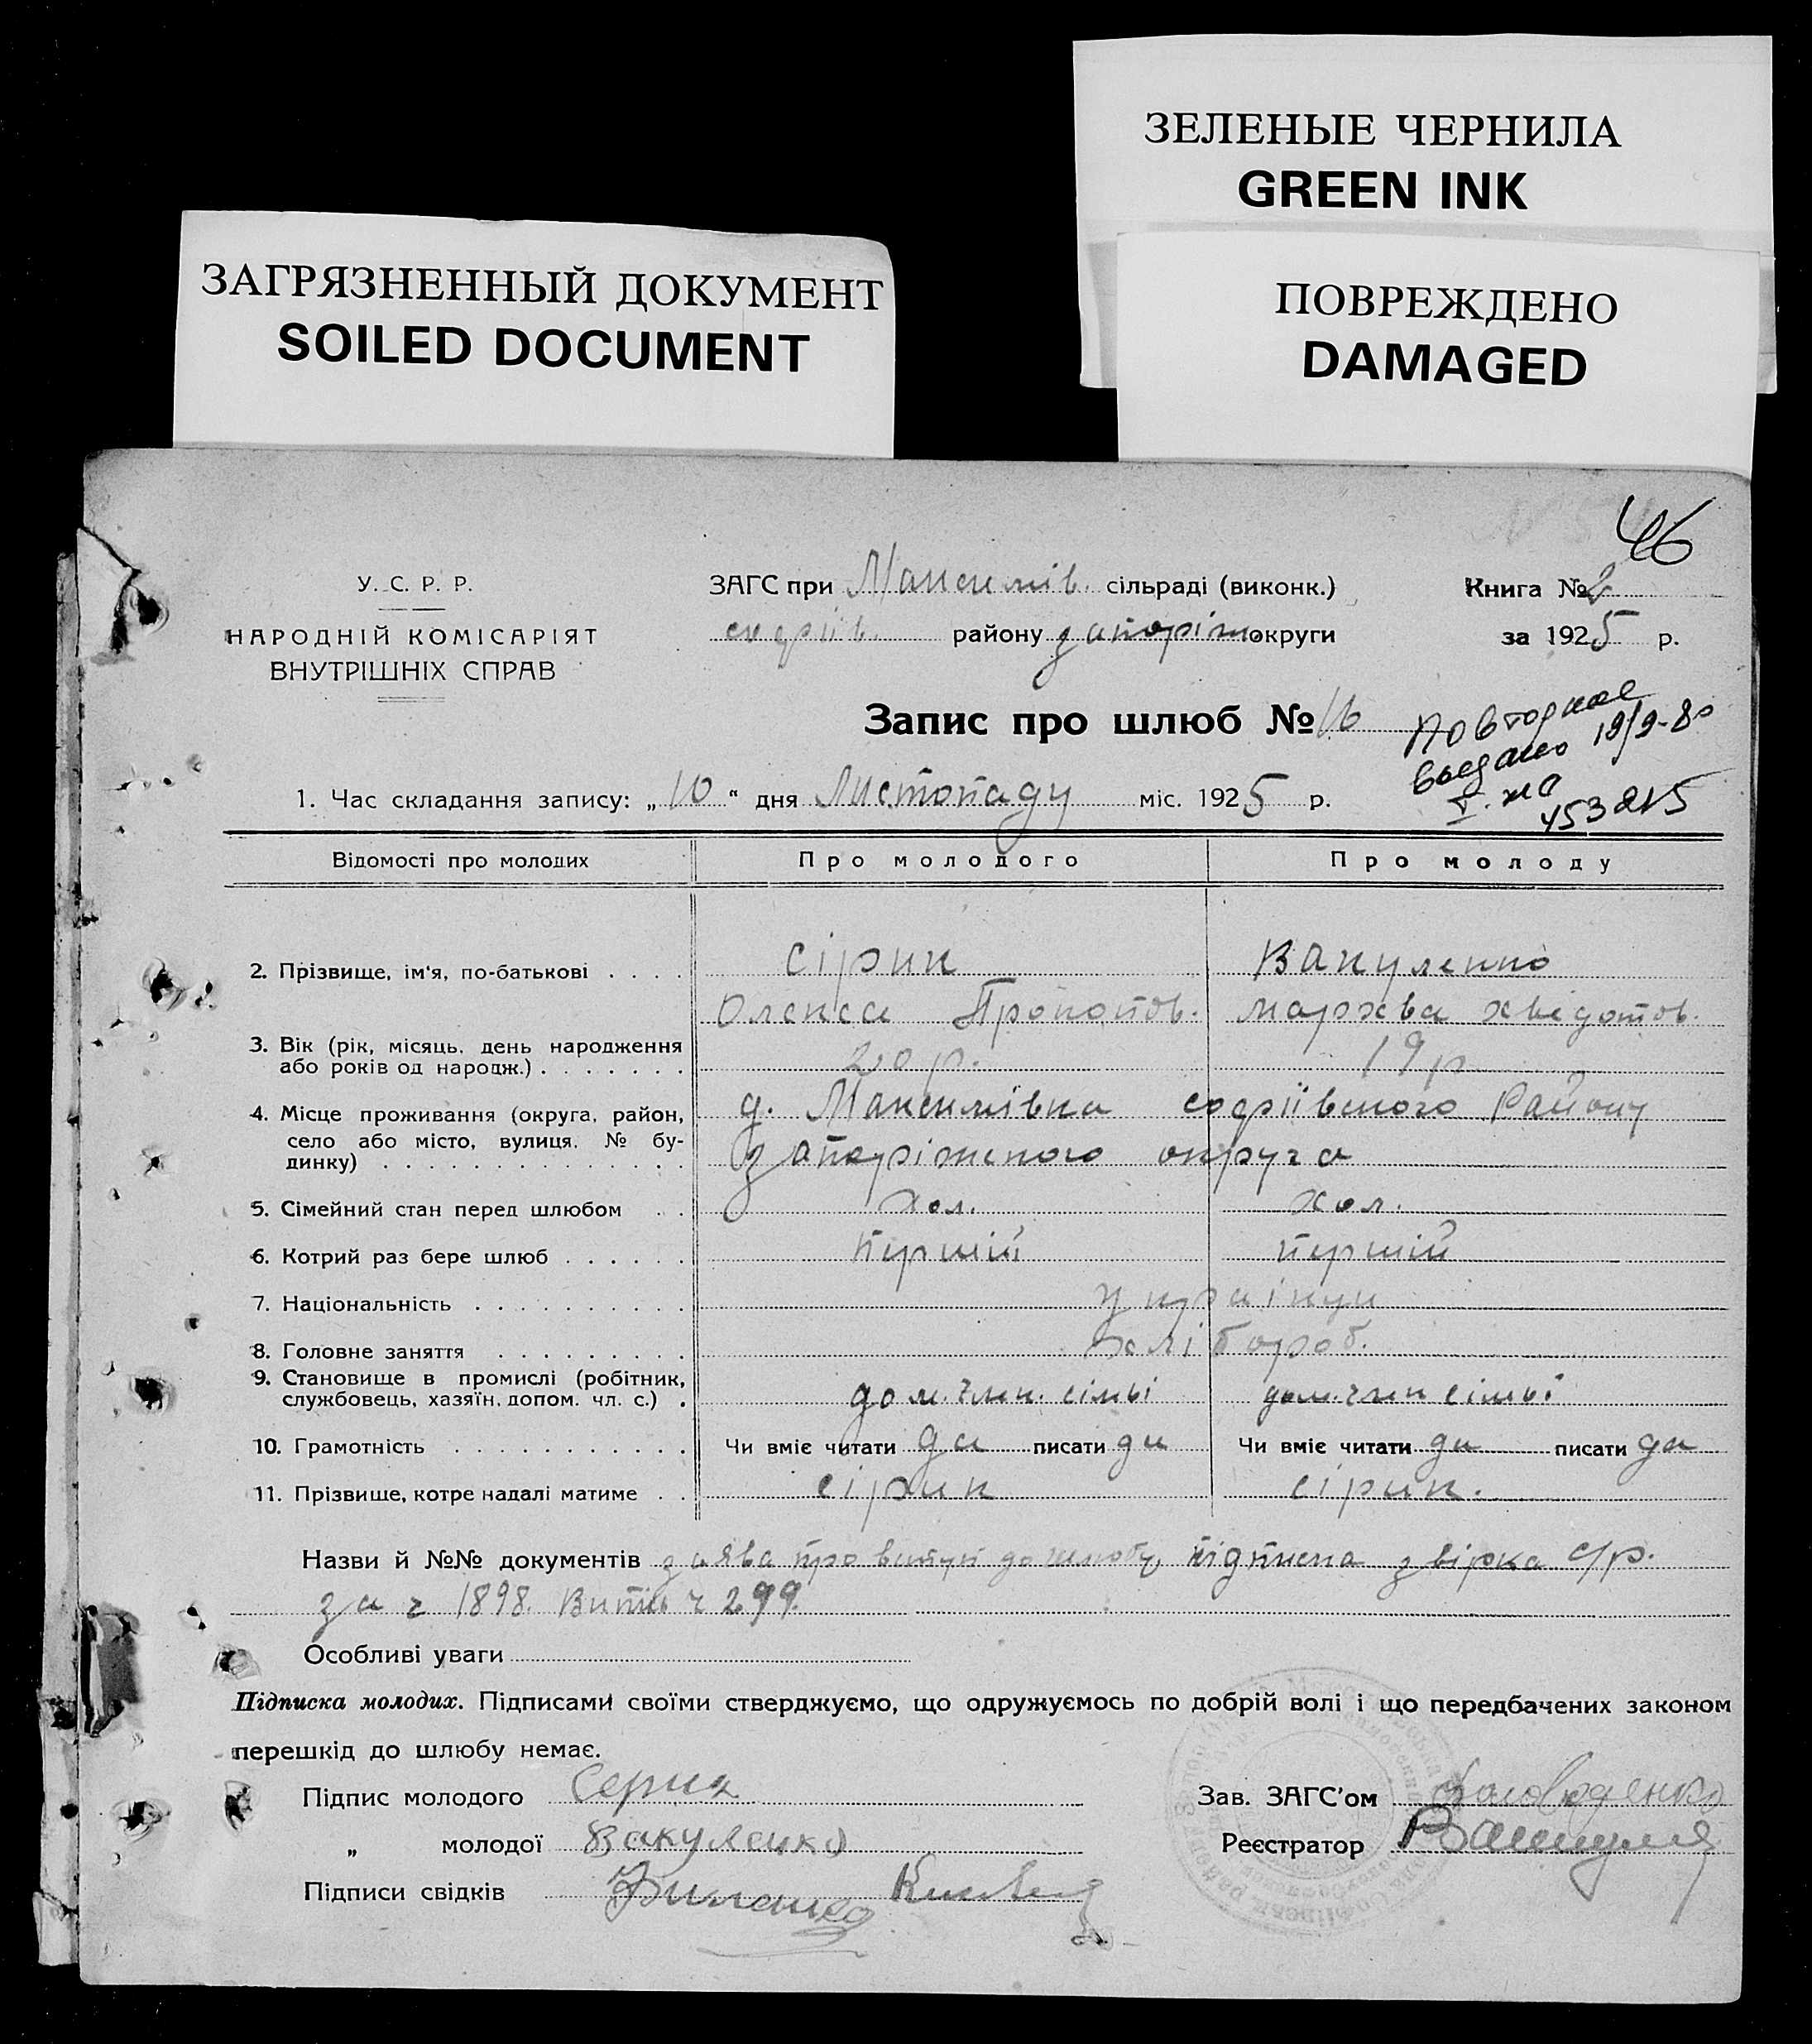 ЗЕЛЕНЫЕ ЧЕРНИЛА
GREEN INK
ЗАГРЯЗНЕННЫЙ ДОКУМЕНТ
SOILED DOCUMENT
ПОВРЕЖДЕНО
DAMAGED
46
У. С. Р. Р.
НАРОДНІЙ КОМІСАРІЯТ
ВНУТРІШНІХ СПРАВ
ЗАГС при Максимів. сільраді (виконк.)
району запоріж округи
Книга № 2
за 1925 р.
Запис про шлюб № 16
Повторное
выдано 19/9-80
153215
1. Час складання запису: „10“ дня Листопаду міс. 1925 р.
Відомості про молодих Про молодого Про молоду
2. Прізвище, ім'я, по-батькові . . . . Сірик Вакуленко
Олекса Прокопов. мархва хведотов.
3. Вік (рік, місяць, день народження
або років од народж.) . . . . . . . 20 р. 19 р
4. Місце проживання (округа, район,
село або місто, вулиця, № бу-
динку) . . . . . . . . . . . . . .
д. Максимівка софіївського Району
запоріжського округа
5. Сімейний стан перед шлюбом . . хол. хол.
6. Котрий раз бере шлюб . . . . . . перший перший
7. Національність . . . . . . . . . . українци
8. Головне заняття . . . . . . . . . хлібороб.
9. Становище в промислі (робітник,
службовець, хазяїн, допом. чл. с.) . дом. член. сімьі дом. член сімьі
10. Грамотність . . . . . . . . . . . Чи вміє читати да писати да Чи вміє читати да писати да
11. Прізвище, котре надалі матиме . . сірик сірик.
Назви й №№ документів заява про вступ до шлюбу, підписка звірка с/р.
за ч 1898. ч 299.
Особливі уваги
Підписка молодих. Підписами своїми стверджуємо, що одружуємось по добрій волі і що передбачених законом
перешкід до шлюбу немає.
Підпис молодого Серик
„ молодої Вакуленко
Підписи свідків
Зав. ЗАГС'ом
Реєстратор